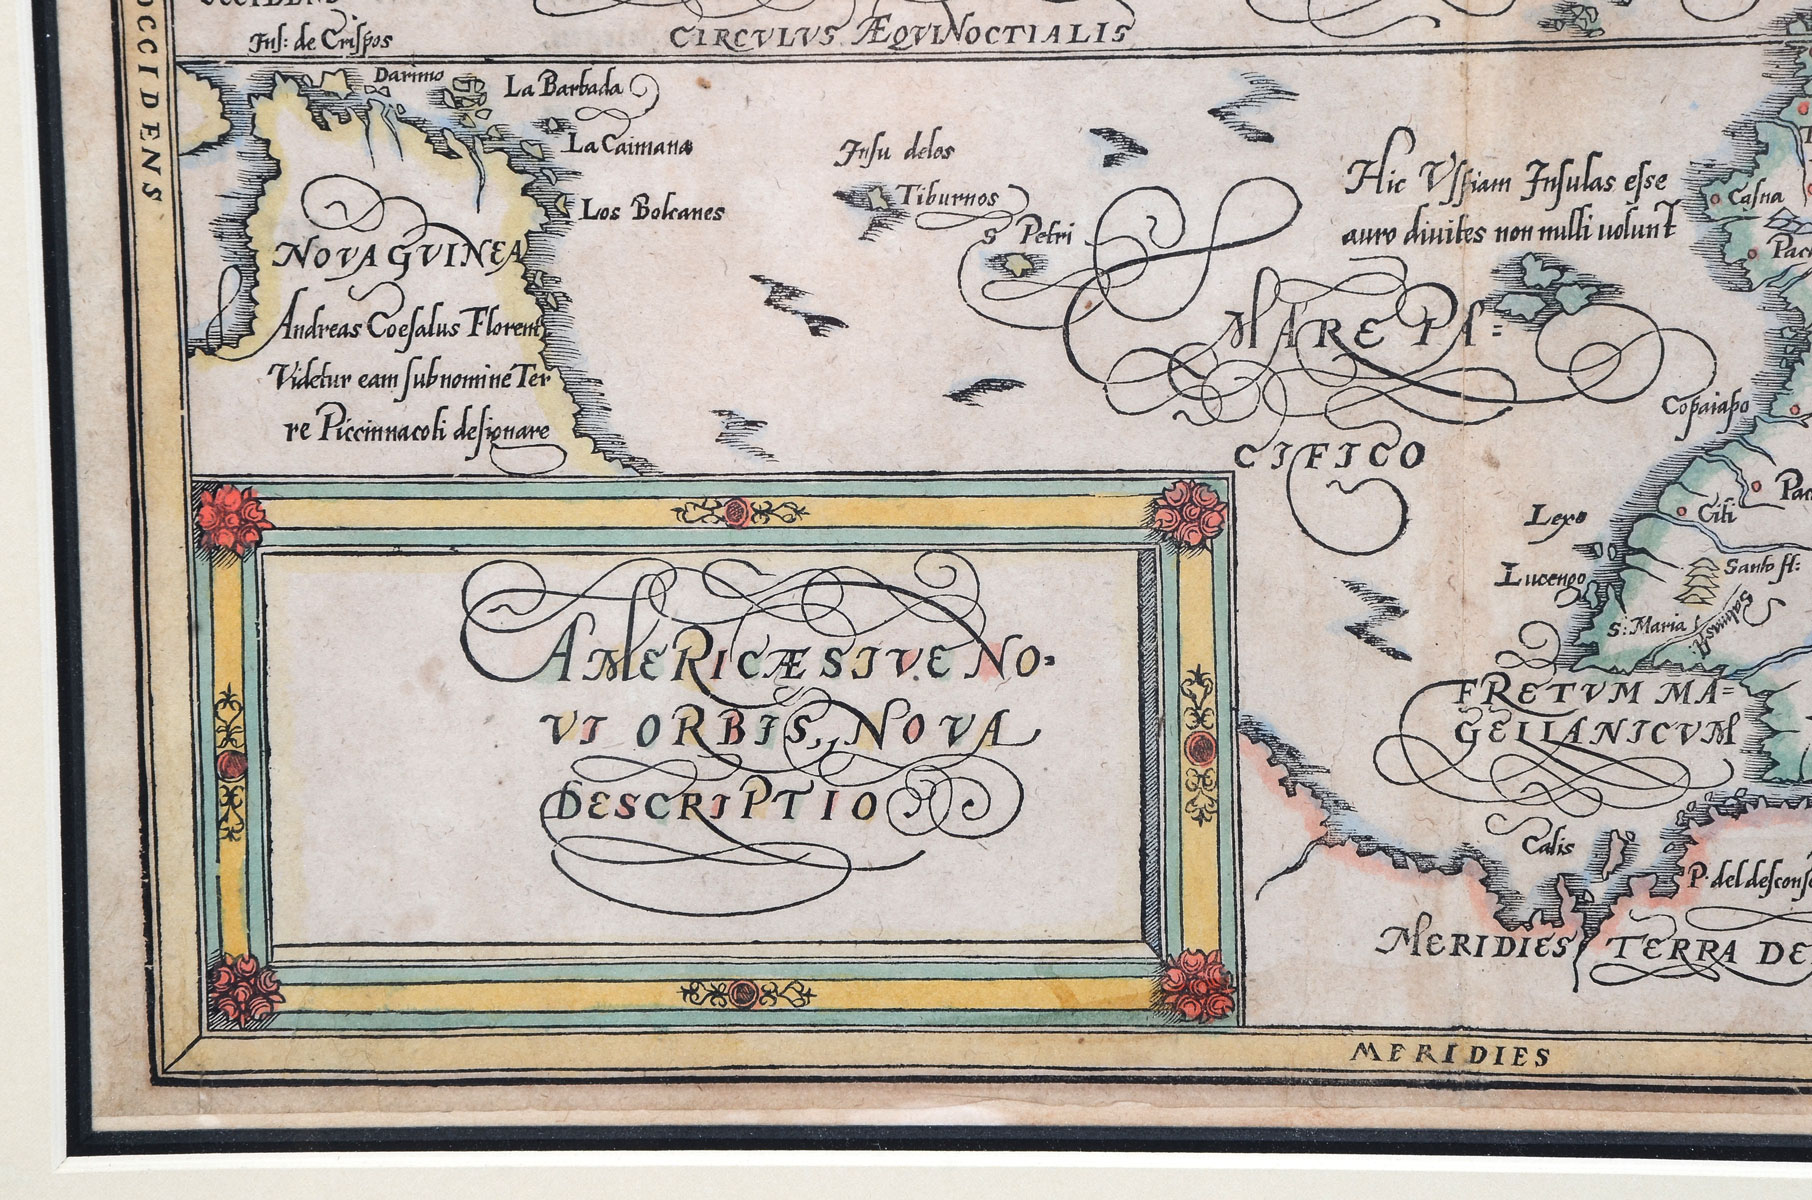 OCCIDENS
Ins: de Crispos
CIRCVLVS ÆQVINOCTIALIS
Darimo
La Barbada
La Caimana
Los Bolcanes
Insu delos
Tiburnos
S Petri
Hic Uspiam Insulas esse
auro diuites non nulli uolunt
Casna
NOVA GVINEA
Andreas Coesalus Florent
Videtur eam sub nomine Ter
re Piccinnacoli designare
MARE PA=
CIFICO
Copaiapo
Lexo
Citi
Lucengo
Santo fl:
S: Maria
FRETVM MA=
GELLANICVM
AMERICÆ SIVE NO=
VI ORBIS, NOVA
DESCRIPTIO
Calis
MERIDIES
TERRA DE
MERIDIES